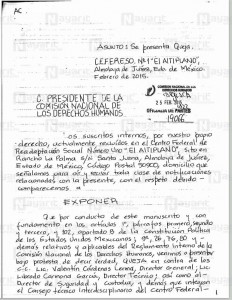 ASUNTO: Se presenta Queja.
CEFERESO. Nº1 "EL ALTIPLANO"
Almoloya de Juárez, Edo. de México.
Febrero de 2015.
C. PRESIDENTE DE LA
COMISIÓN NACIONAL DE
LOS DERECHOS HUMANOS
Los suscritos internos, por nuestro propio
derecho, actualmente recluidos en el Centro Federal de
Readaptación Social Número Uno "EL ALTIPLANO", sito en
Rancho La Palma s/n Santa Juana, Almoloya de Juárez,
Estado de México, Código Postal 50900, domicilio que
señalamos para oír y recibir toda clase de notificaciones
relacionadas con la presente, con el respeto debido
comparecemos a
EXPONER
Que por conducto de este manuscrito y con
fundamento en los artículos 1º, párrafos primero, segundo
y tercero, y 102, apartado B de la Constitución Política
de los Estados Unidos Mexicanos;
demás relativos y aplicables del Reglamento Interno de la
Comisión Nacional de los Derechos Humanos, venimos a presentar
bajo protesta de decir verdad, QUEJA en contra de los
C.C. Lic. Valentín Cárdenas Lerma, Director General; Lic.
Librado Carmona García, Director Técnico; así como al
Director de Seguridad y Custodia, y demás que integran
el Consejo Técnico Interdisciplinario del Centro Federal